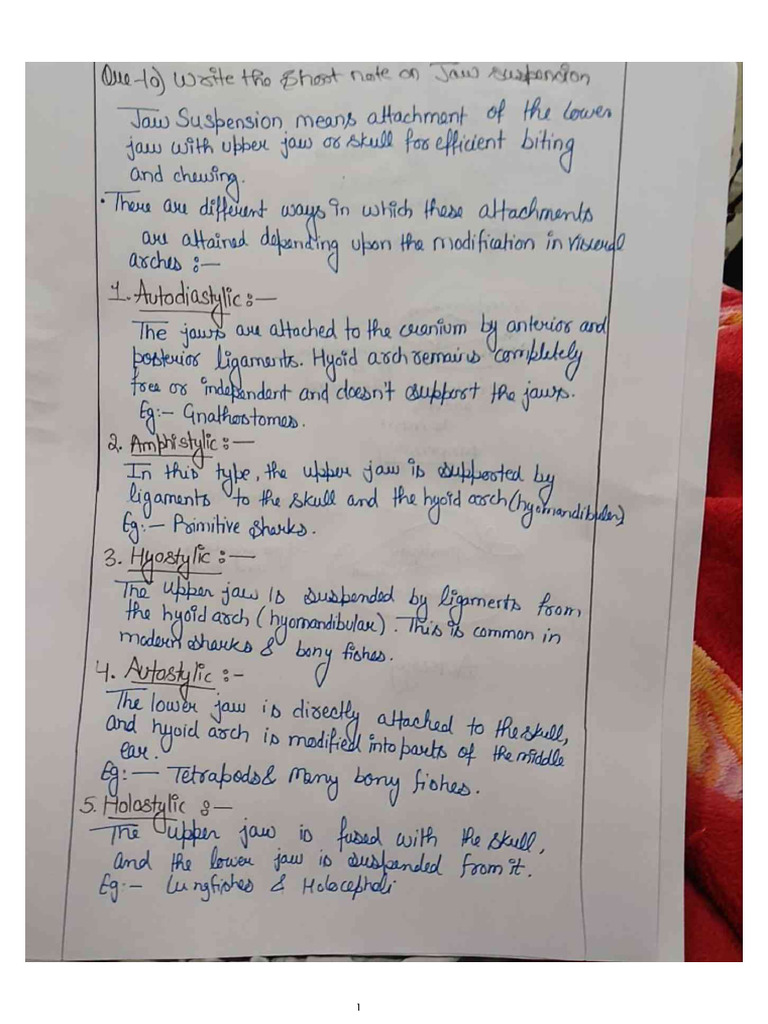 Que-10) Write the Short note on Jaw suspension
Jaw Suspension means attachment of the lower
jaw with upper jaw or skull for efficient biting
and chewing.
• There are different ways in which these attachments
are attained depending upon the modification in visceral
arches :-
1. Autodiastylic :-
The jaws are attached to the cranium by anterior and
posterior ligaments. Hyoid arch remains completely
free or independent and doesn't support the jaws.
Eg:- Gnathostomes.
2. Amphistylic :-
In this type, the upper jaw is supported by
ligaments to the skull and the hyoid arch (hyomandibular)
Eg:- Primitive sharks.
3. Hyostylic :-
The upper jaw is suspended by ligaments from
the hyoid arch (hyomandibular). This is common in
modern sharks & bony fishes.
4. Autostylic :-
The lower jaw is directly attached to the skull,
and hyoid arch is modified into parts of the middle
ear.
Eg:- Tetrapods & Many bony fishes.
5. Holostylic :-
The upper jaw is fused with the skull,
and the lower jaw is suspended from it.
Eg:- Lungfishes & Holocephali
1